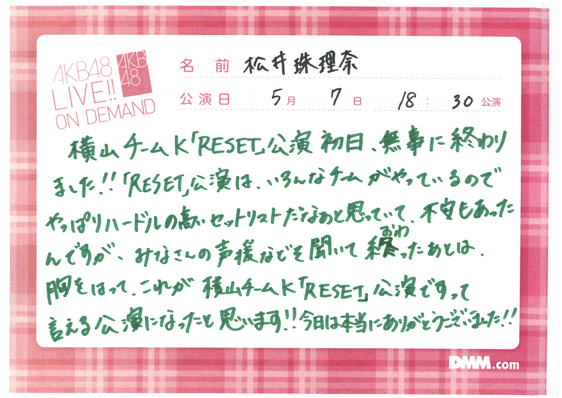 AKB48
LIVE!!
ON DEMAND
AKB
48
名前 松井珠理奈
公演日 5月 7日 18:30公演
横山チームK「RESET」公演初日、無事に終わり
ました!!「RESET」公演は、いろんなチームがやっているので
やっぱりハードルの高いセットリストだなあと思っていて、不安もあった
んですが、みなさんの声援などを聞いて終(おわ)ったあとは、
胸をはって、これが横山チームK「RESET」公演ですって
言える公演になったと思います!!今日は本当にありがとうございました!!
DMM.com